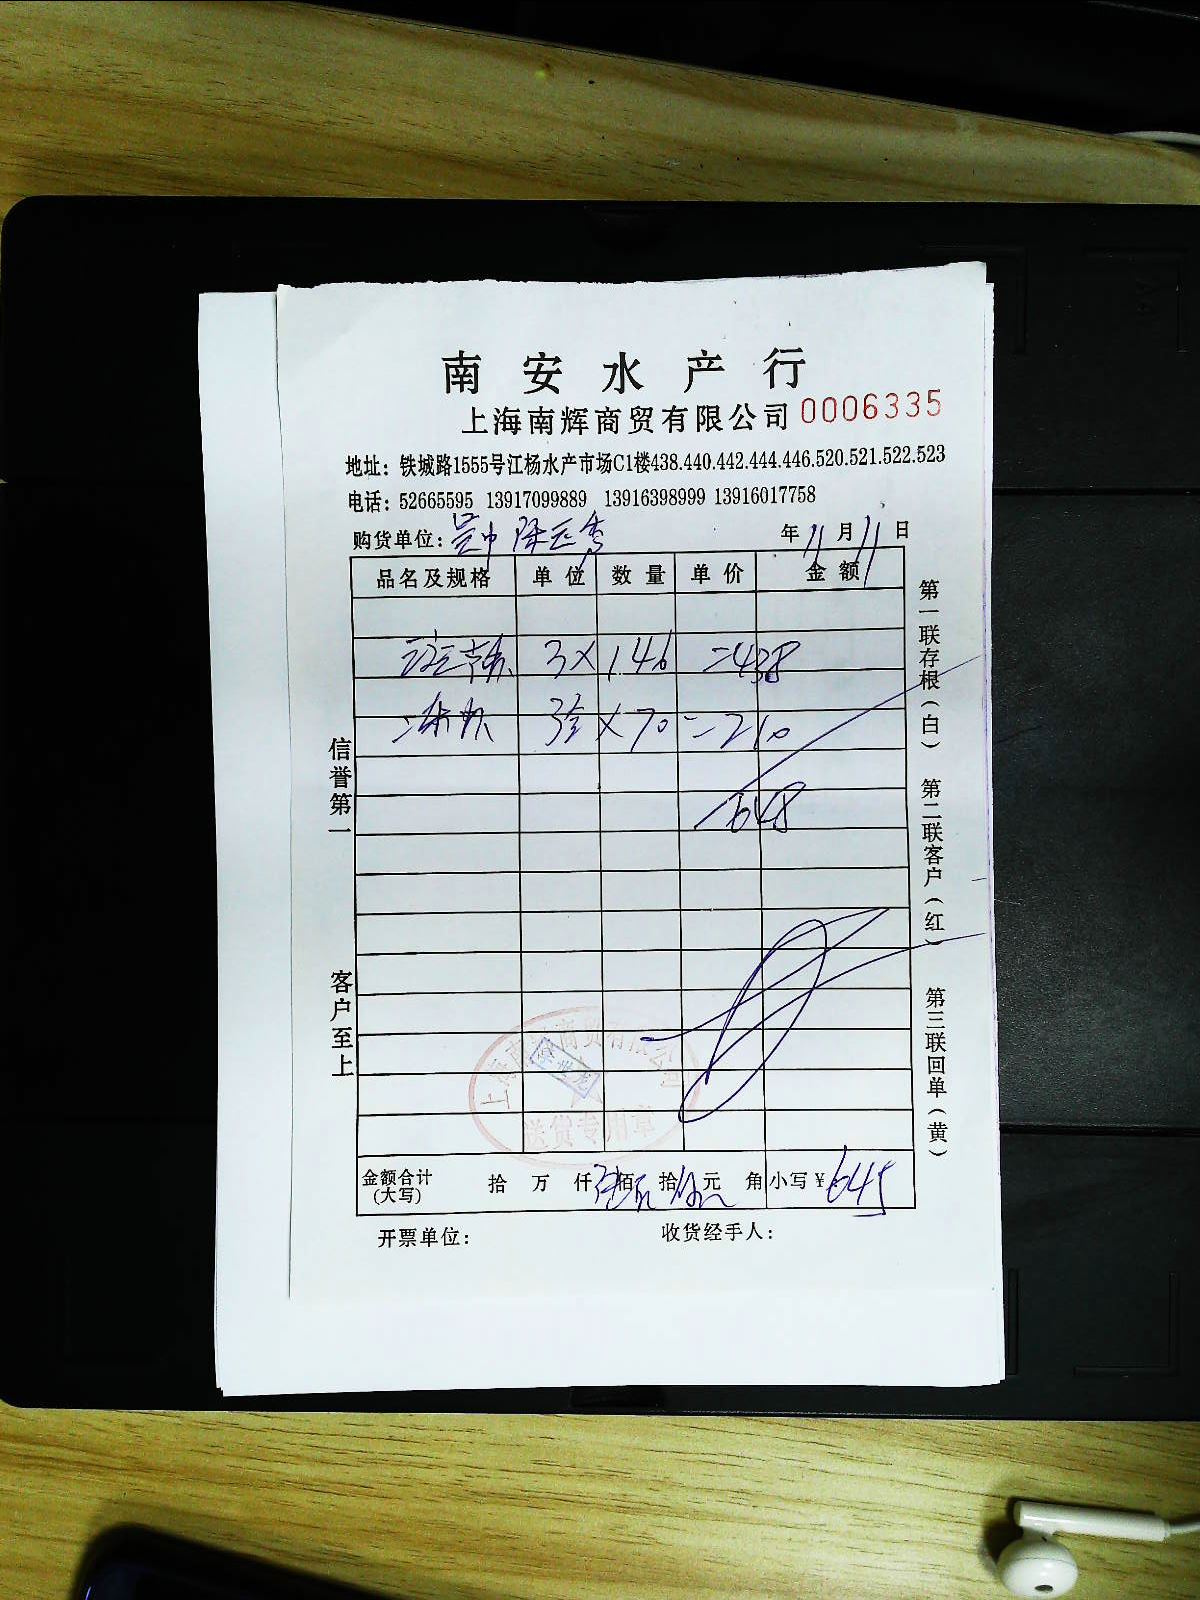 南安水产行
上海南辉商贸有限公司 0006335
地址：铁城路1555号江杨水产市场C1楼438.440.442.444.446.520.521.522.523
电话：52665595 13917099889 13916398999 13916017758
购货单位： 年11月11日
品名及规格 单位 数量 单价 金额
3×146=438
3×70=210
648
信誉第一
客户至上
第一联存根（白） 第二联客户（红） 第三联回单（黄）
上海南辉商贸有限公司
送货专用章
金额合计（大写） 拾 万 仟 佰 拾 元 角 小写￥645
开票单位： 收货经手人：